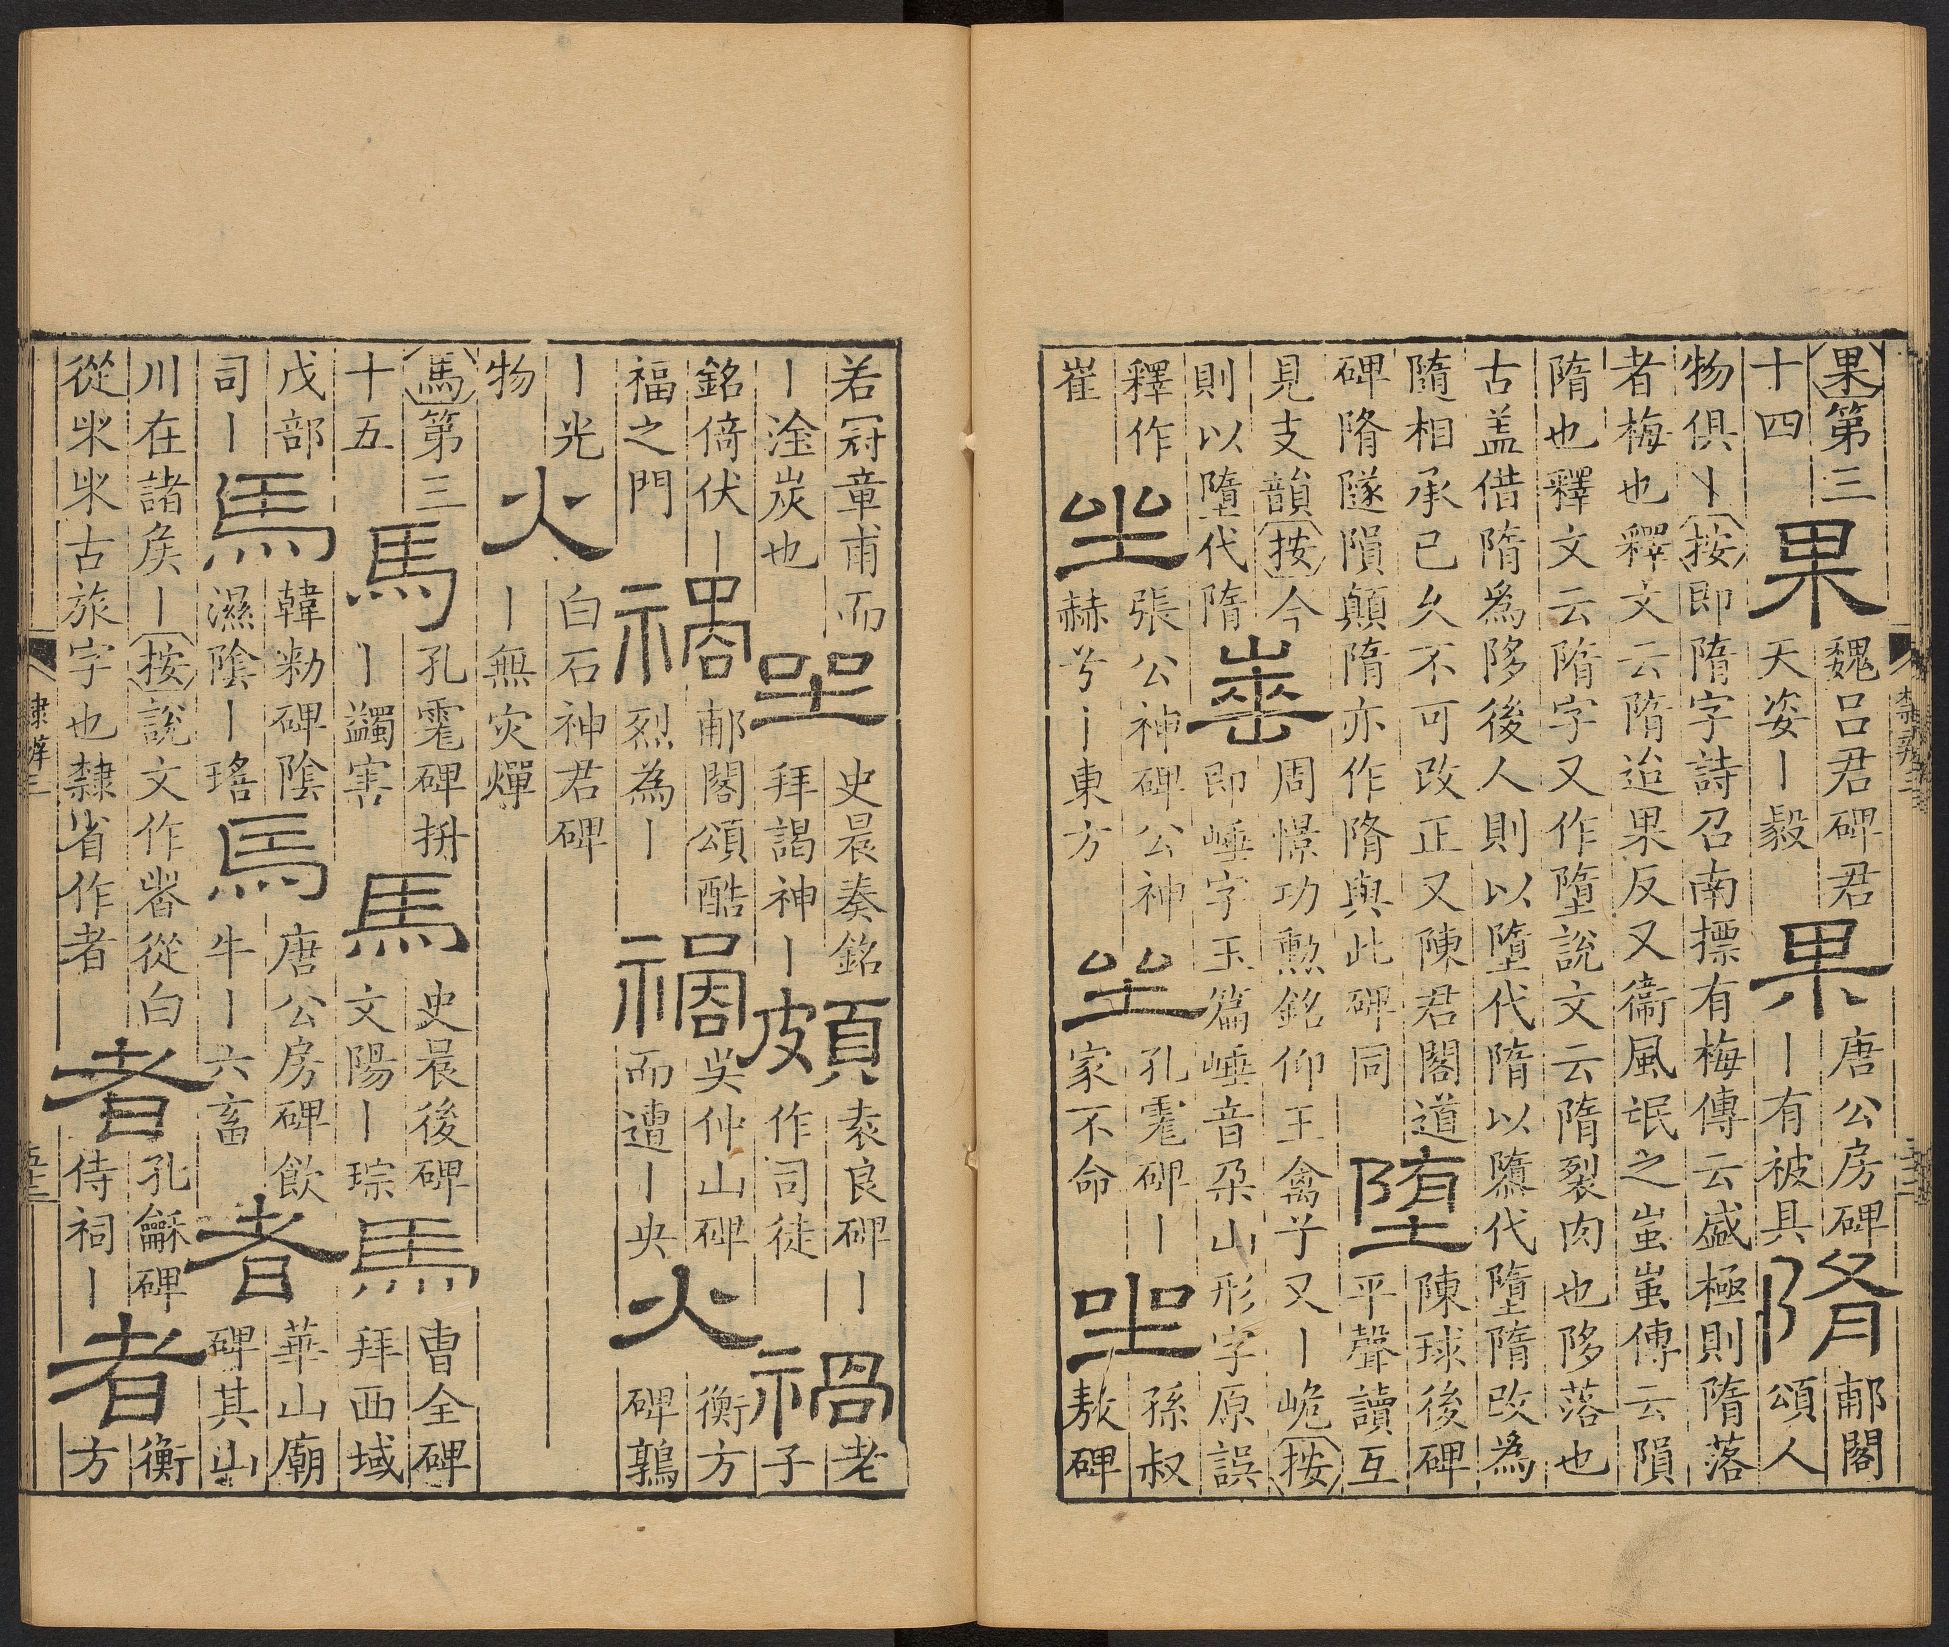 果第三
十四
果
魏呂君碑君
天姿丨毅
果
唐公房碑
丨有被具
隋
郙閣
頌人
物俱丨按即隋字詩召南摽有梅傳云盛極則隋落
者梅也釋文云隋迨果反又衞風氓之蚩蚩傳云隕
隋也釋文云隋字又作墮說文云隋裂肉也陊落也
古盖借隋為陊後人則以墮代隋以隳代墮隋改為
隨相承已久不可改正又陳君閣道
碑隋隧隕顛隋亦作隋與此碑同
堕
陳球後碑
平聲讀互
見支韻按今
則以墮代隋
崜
周憬功勲銘仰王禽孑又丨峗按
即崜字玉篇崜音朶山形字原誤
釋作
崔
坐
張公神碑公神
赫兮丨東方
坐
孔宙碑丨
家不命
坐
孫叔
敖碑
若冠章甫而
丨淦炭也
坐
史晨奏銘
拜謁神丨
頗
袁良碑丨
作司徒
禍
老
子
銘倚伏丨
福之門
禍
郙閣頌酷
烈為丨
禍
吳仲山碑
而遭丨央
火
衡方
碑鶉
丨光
物
火
白石神君碑
丨無灾燀
馬第三
十五
馬
孔宙碑拼
丨蠲害
馬
史晨後碑
文陽丨琮
馬
曹全碑
拜西域
戊部
司丨
馬
韓勑碑陰
濕陰丨瑤
馬
唐公房碑飲
牛丨六畜
者
華山廟
碑其山
川在諸矦丨按說文作㫋從白
從古旅字也隸省作者
者
孔龢碑
侍祠丨
者
衡
方
隸辨三